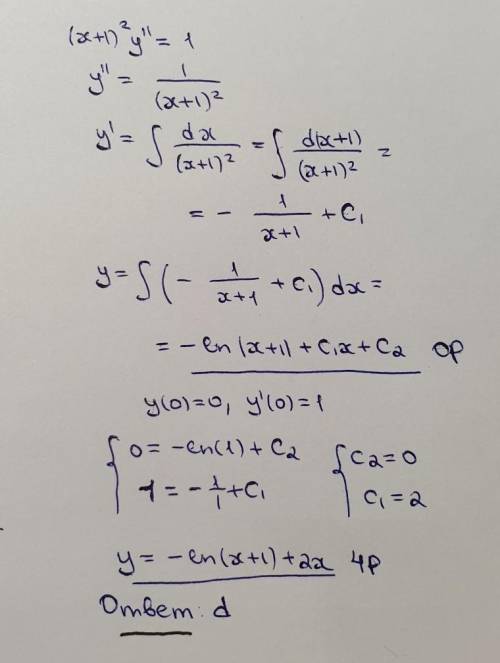 (x+1)²y''= 1
y''= 1/(x+1)²
y'= ∫ dx/(x+1)² = ∫ d(x+1)/(x+1)² =
= - 1/(x+1) + C₁
y= ∫(- 1/(x+1) + C₁) dx =
= -ln|x+1| + C₁x + C₂ ОР
y(0)=0, y'(0)=1
{ 0 = -ln(1) + C₂ { C₂=0
1 = - 1/1 + C₁ C₁=2
y = -ln(x+1) + 2x ЧР
Ответ: d